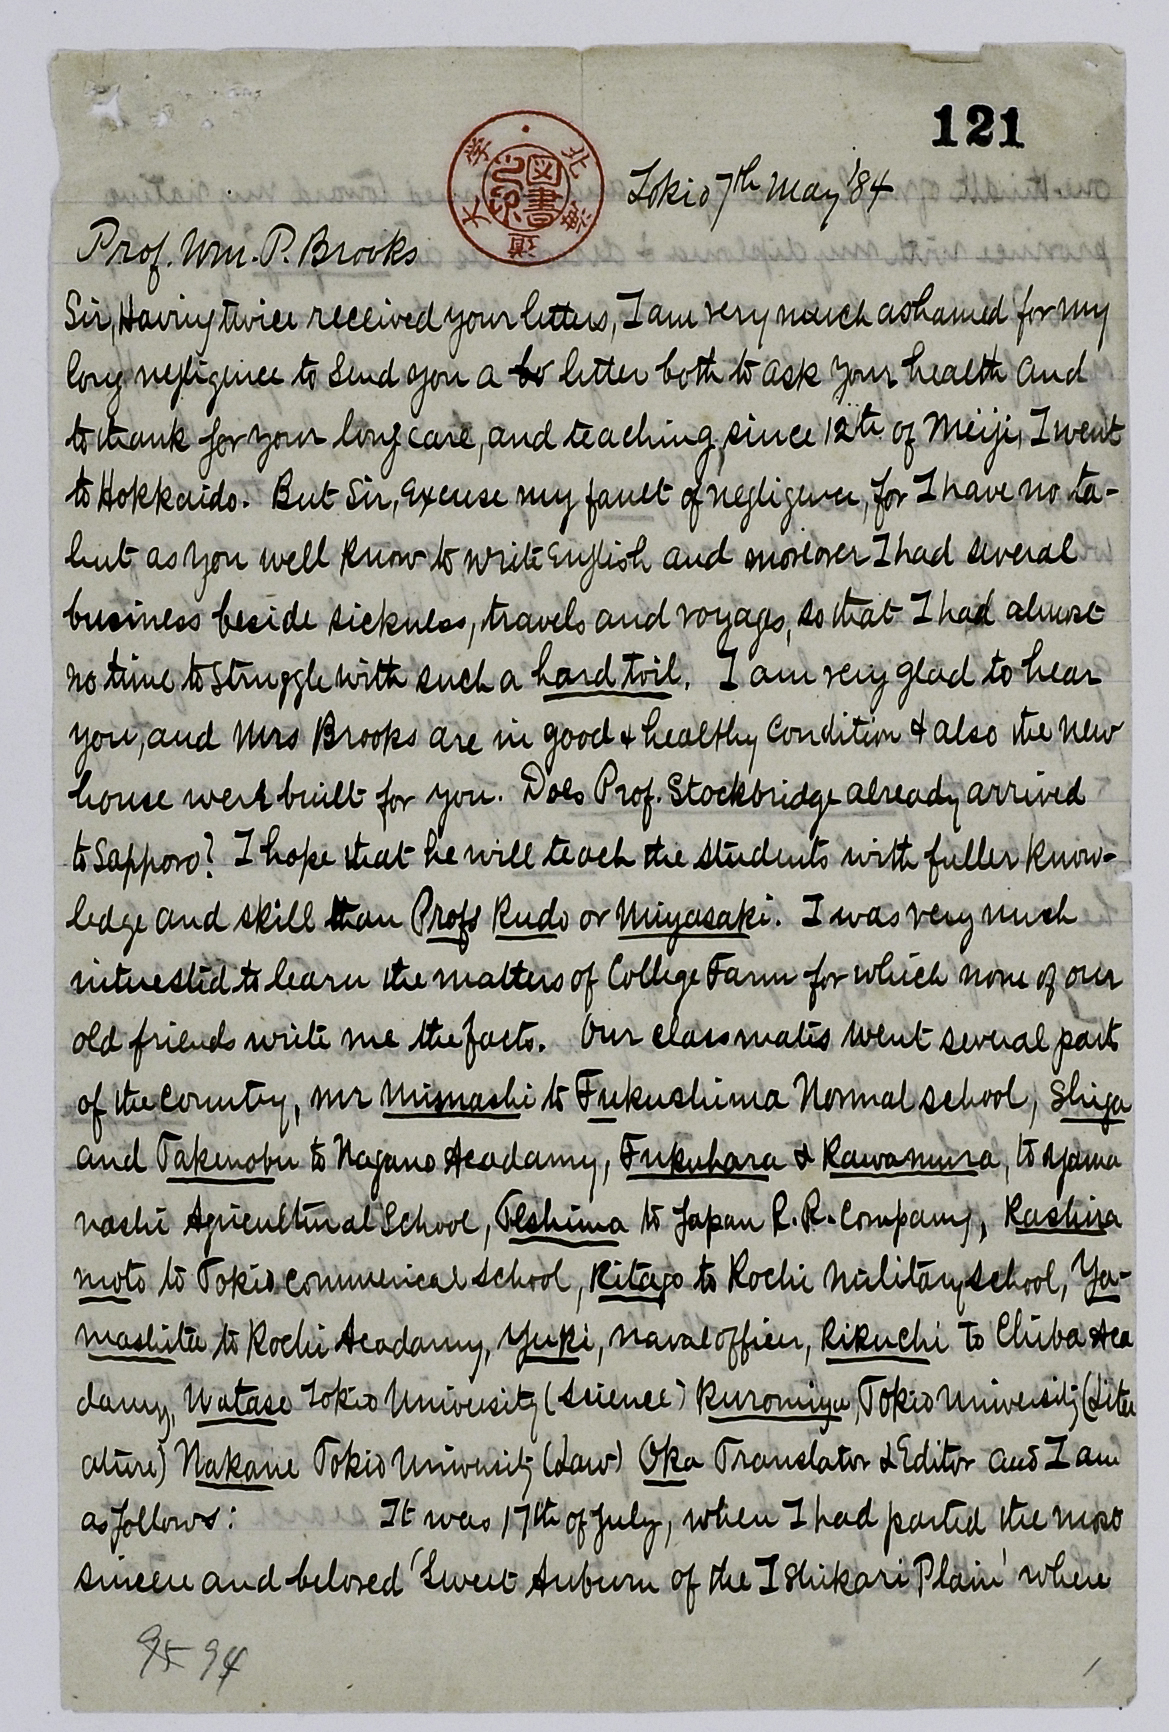 121
北海道大学
図書之印
Tokio 7th May '84
Prof. Wm. P. Brooks
Sir, Having twice received your letters, I am very much ashamed for my
long negligence to Send you a letter both to ask your health and
to thank for your long care, and teaching, since 12th of Meiji, I went
to Hokkaido. But Sir, Excuse my fault of negligence, for I have no ta-
lent as you well know to write English and moreover I had several
business beside sickness, travels and voyages, so that I had almost
no time to Struggle with such a hard toil. I am very glad to hear
you, and Mrs Brooks are in good & healthy Condition & also the new
house were built for you. Does Prof. Stockbridge already arrived
to Sapporo? I hope that he will teach the students with fuller know-
ledge and skill than Profs Kudo or Miyasaki. I was very much
interested to learn the matters of College Farm for which none of our
old friends write me the facts. Our classmates went several parts
of the Country, Mr to Fukushima Normal school, Shiga
and Takenobu to Nagano Acadamy, Fukuhara & Kawamura, to Yama
nashi Agricultural School, Teshima to Japan R.R. Company, Kashiwa
moto to Tokio Commerical school, Kitago to Kochi Military school, Ya-
mashita to Kochi Acadamy, Yuki, naval officer, Kikuchi to Chiba Aca
damy, Watase Tokio University (Science) Kuromiya, Tokio University (Liter
ature) Nakane Tokio University (Law) Oka Translator & Editor and I am
as follows: It was 17th of July, when I had parted the most
sincere and beloved 'Sweet Auburn of the Ishikari Plain' where
95 94